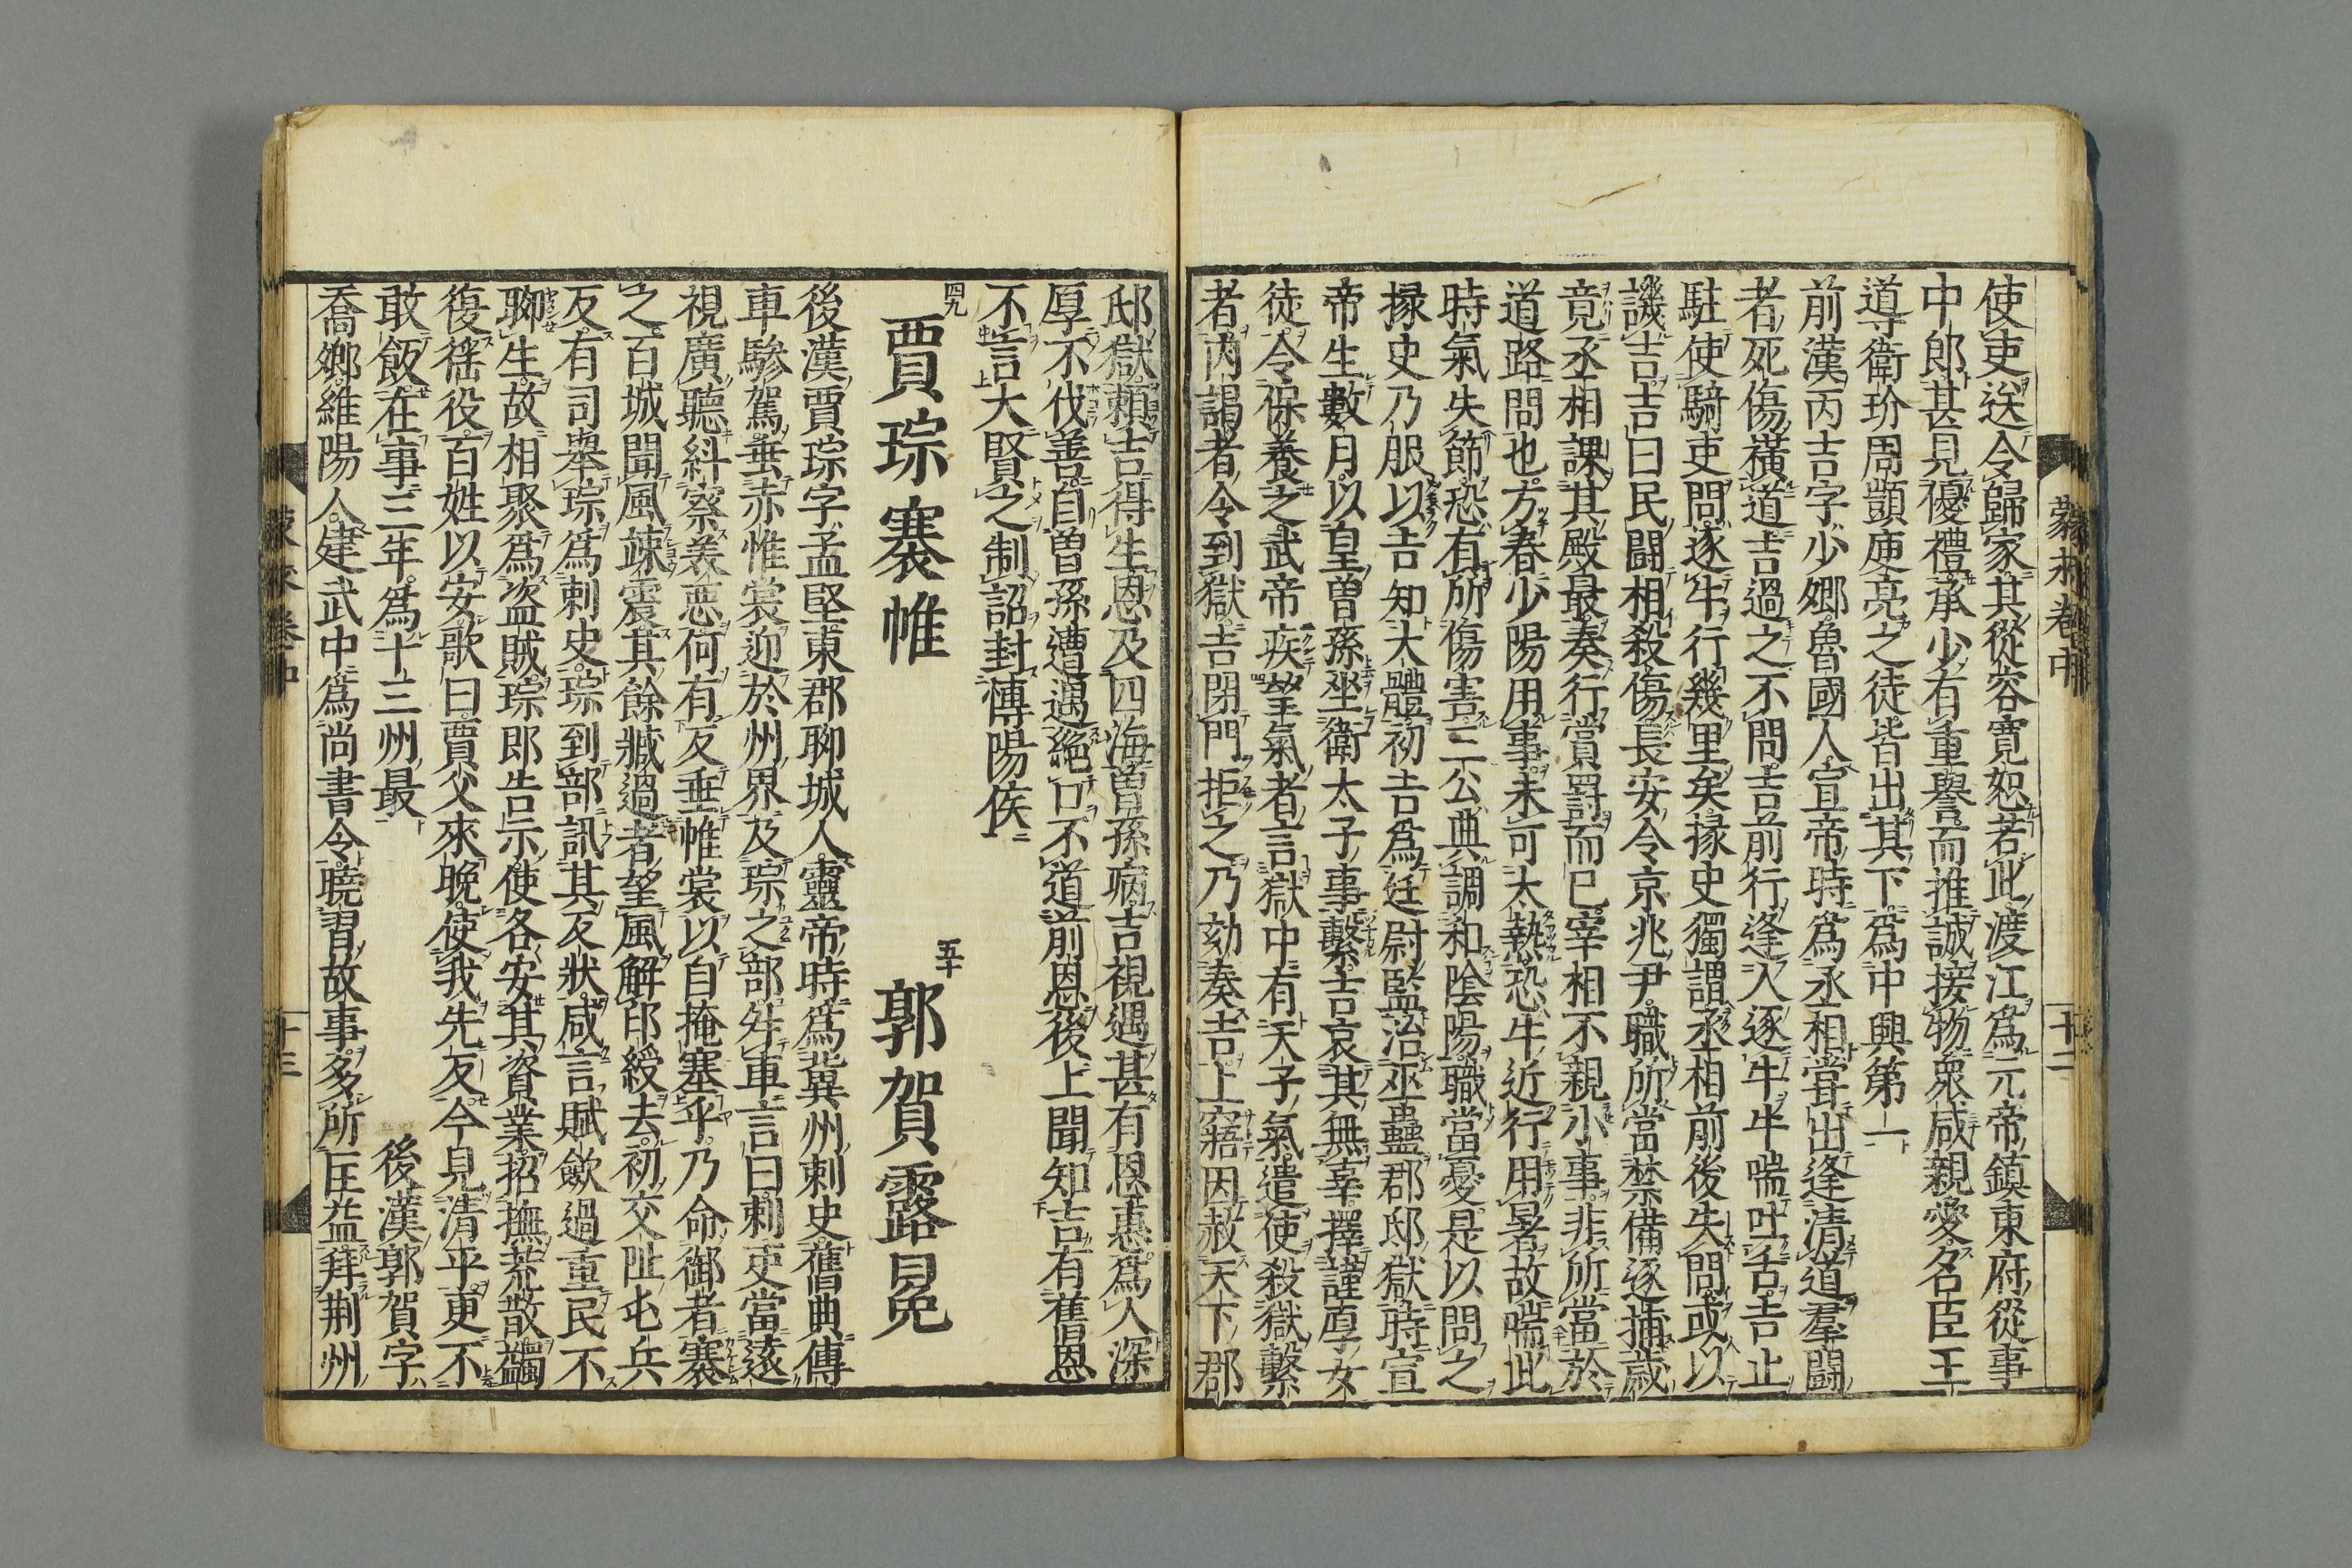 使吏送令歸家其從容寬恕若此渡江爲元帝鎮東府從事
中郎甚見優禮承少有重譽而推誠接物衆咸親愛名臣王
道衛玠周顗庾亮之徒皆出其下爲中興第一
前漢丙吉字少卿魯國人宣帝時爲丞相甞出逢清道羣鬭
者死傷橫道吉過之不問吉前行逢人逐牛牛喘吐舌吉止
駐使騎吏問逐牛行幾里矣掾史獨謂丞相前後失問或以
譏吉吉曰民鬭相殺傷長安令京兆尹職所當禁備逐捕歲
竟丞相課其殿最奏行賞罸而已宰相不親小事非所當於
道路問也方春少陽用事未可太熱恐牛近行用暑故喘此
時氣失節恐有所傷害三公典調和陰陽職當憂是以問之
掾史乃服以吉知大體初吉爲廷尉監治巫蠱郡邸獄時宣
帝生數月以皇曽孫坐衛太子事繫吉哀其無辜擇謹厚女
徒令保養之武帝疾望氣者言獄中有天子氣遣使殺獄繫
者内謁者令到獄吉閉門拒之乃劾奏吉上寤因赦天下郡
蒙求卷中
十二
邸獄頼吉得生恩及四海曽孫病吉視遇甚有恩惠爲人深
厚不伐善自曽孫遭遇絶口不道前恩後上聞知吉有舊恩
不言大賢之制詔封博陽侯
四九 賈琮褰帷 五十 郭賀露冕
後漢賈琮字孟堅東郡聊城人靈帝時爲冀州刺史舊典傳
車驂駕垂赤帷裳迎於州界及琮之部升車言曰刺吏當遠
視廣聽糾察羙惡何有反垂帷裳以自掩塞乎乃命御者褰
之百城聞風竦震其餘臧過者望風解印綬去初交阯屯兵
反有司舉琮爲刺史琮到部訊其反狀咸言賦歛過重民不
聊生故相聚爲盗賊琮郎告示使各安其資業招撫荒散蠲
復徭役百姓以安歌曰賈父來晩使我先反今見清平更不
敢飯在事三年爲十三州最 後漢郭賀字
喬卿維陽人建武中爲尚書令曉習故事多所匡益拜荆州
蒙求卷中
十三